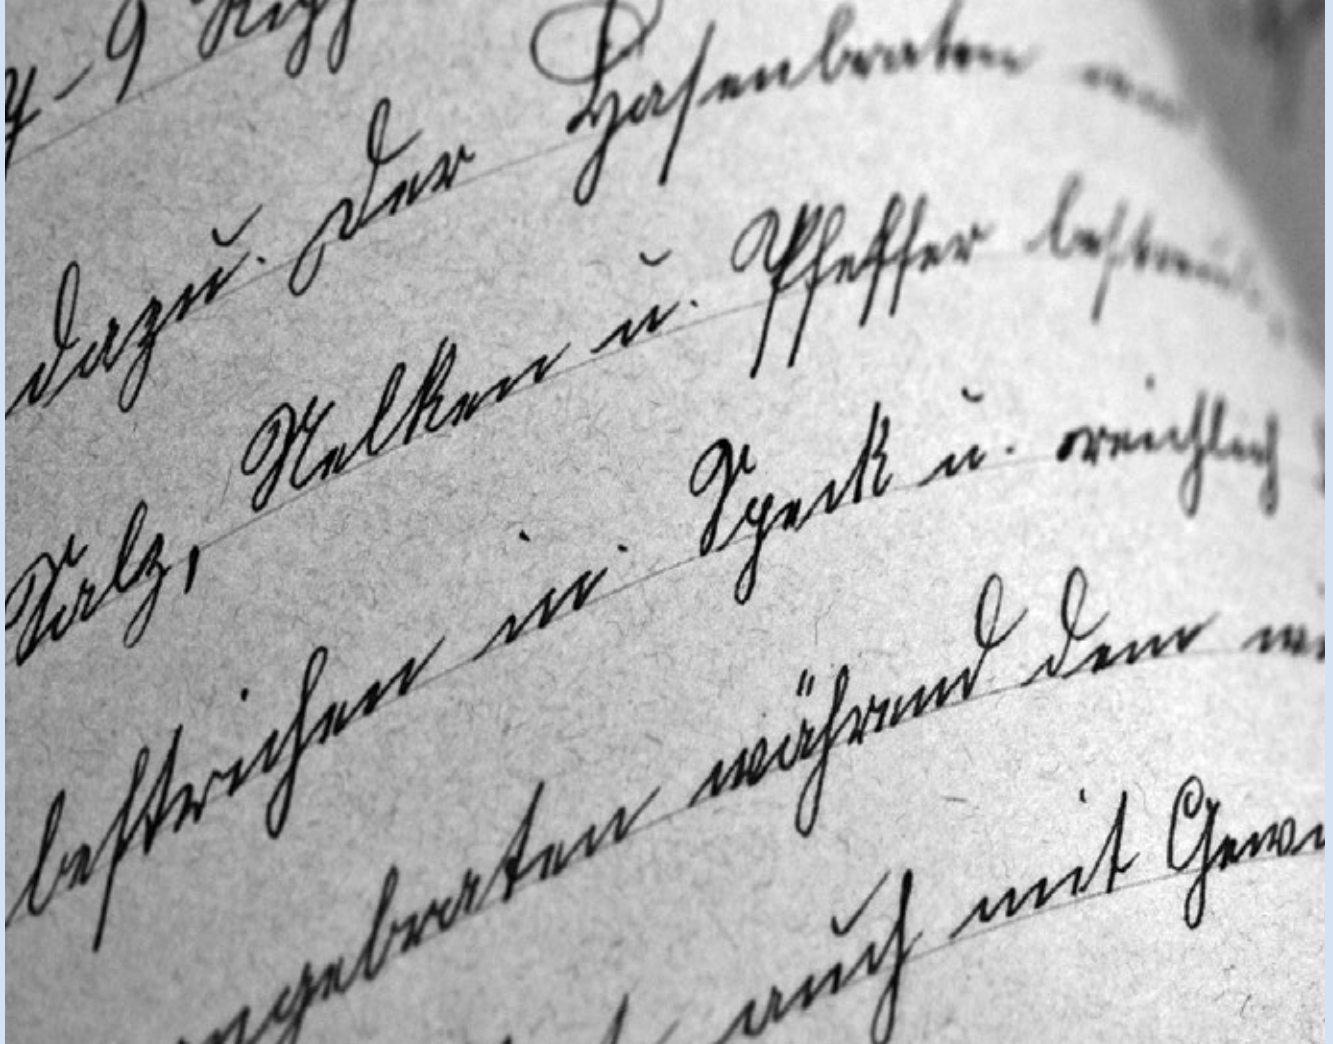 dazu. Der Hasenbraten
Salz, Nelken u. Pfeffer
bestrichen in Speck u. reichlich
angebraten während dem
auch mit